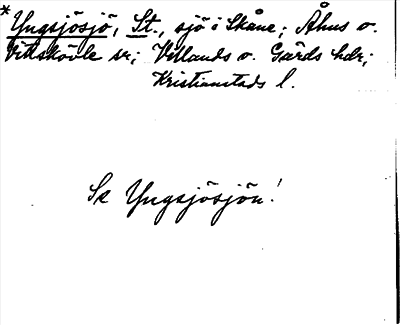 * Yngsjösjö, St., sjö i Skåne; Åhus o.
Vittskövle sr; Villands o. Gärds hdr;
Kristianstads l.
Se Yngsjösjön!